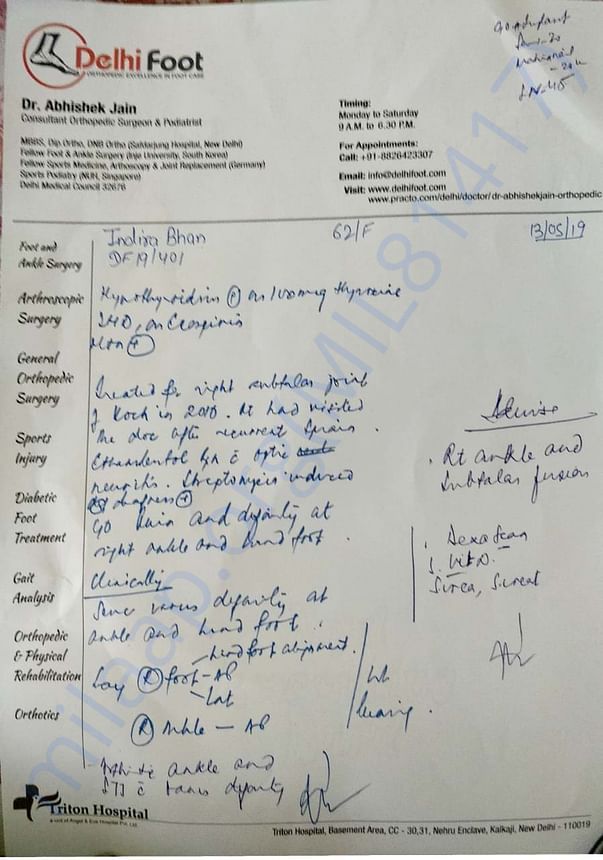 Delhi Foot
ORTHOPEDIC EXCELLENCE IN FOOT CARE
Dr. Abhishek Jain
Consultant Orthopedic Surgeon & Podiatrist
MBBS, Dip Ortho, DNB Ortho (Safdarjung Hospital, New Delhi)
Fellow Foot & Ankle Surgery (Inje University, South Korea)
Fellow Sports Medicine, Arthoscopy & Joint Replacement (Germany)
Sports Podiatry (NUH, Singapore)
Delhi Medical Council 32676
Timing:
Monday to Saturday
9 A.M. to 6.30 P.M.
For Appointments:
Call: +91-8826423307
Email: info@delhifoot.com
Visit: www.delhifoot.com
www.practo.com/delhi/doctor/dr-abhishekjain-orthopedic
Indira Bhan 62/F 13/05/19
DF19/401
Foot and
Ankle Surgery
Arthroscopic
Surgery
General
Orthopedic
Surgery
Sports
Injury
Diabetic
Foot
Treatment
Gait
Analysis
Orthopedic
& Physical
Rehabilitation
Orthotics
on 100mcg Thyroxine
HTN +
treated for right subtalar joint
Koch in 2010. Pt had visited
the doc after recurrent sprain.
Ethambutol optic
neuritis. Streptomycin induced
deafness +
pain and deformity at
right ankle and hind foot.
Clinically
varus deformity at
ankle and hind foot.
hind foot alignment.
R foot - AP
Lat
R Ankle - AP
bearing.
ankle and
STJ c varus deformity
Advise
Rt ankle and
subtalar fusion
Dexa Scan
Vit D
S. Urea, S. Creat
milaap.org
Triton Hospital
Triton Hospital, Basement Area, CC - 30,31, Nehru Enclave, Kalkaji, New Delhi - 110019